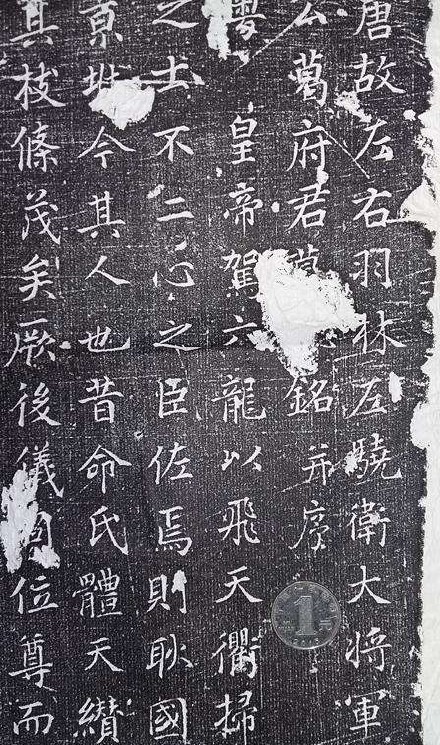 唐故左右羽林左驍衛大將軍
公葛府君墓銘并序
粵皇帝駕六龍以飛天衢掃
之士不二心之臣佐焉則耿國
今其人也昔命氏體天纘
其枝條茂矣厥後儀同位尊而
1